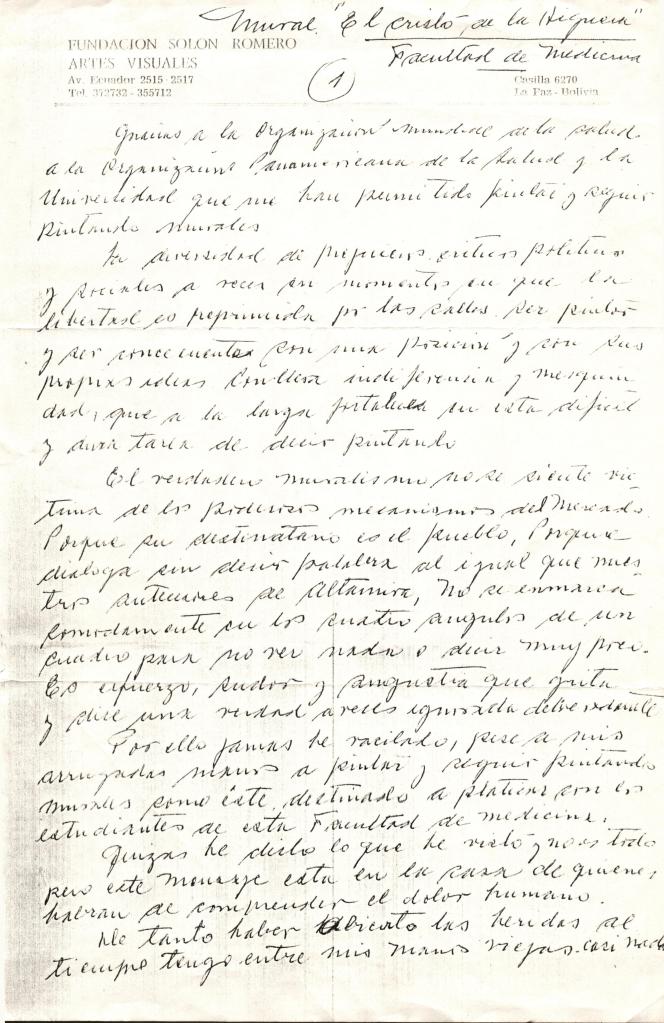 Mural "El cristo, de la Higuera"
FUNDACION SOLON ROMERO
ARTES VISUALES
Facultad de Medicina
Av. Ecuador 2515 - 2517
Tel. 372732 - 355712
(1)
Casilla 6270
La Paz - Bolivia
Gracias a la Organización mundial de la salud
a la Organización Panamericana de la Salud y la
Universidad que me han permitido pintar y seguir
pintando murales
La diversidad de prejuicios, criticas politicas
y sociales a veces en momentos en que la
libertad es reprimida por las calles. Ser pintor
y ser concecuente con una posición y con sus
propias ideas conlleva indiferencia y mesquin
dad, que a la larga fortalece en esta dificil
y dura tarea de decir pintando
El verdadero muralismo no se siente vic
tima de los poderosos mecanismos del Mercado
Porque su destinatario es el pueblo, Porque
dialoga sin decir palabra al igual que nues
tros antecesores de Altamira, No se enmarca
comodamente en los cuatro angulos de un
cuadro para no ver nada o decir muy poco.
Es esfuerzo, sudor y angustia que grita
y dice una verdad a veces ignorada
Por ello jamas he vacilado, pese a mis
arrugadas manos a pintar y seguir pintando
murales como éste, destinado a platicar con los
estudiantes de esta Facultad de medicina.
Quizas he dicho lo que he visto y no es todo
pero este mensaje esta en la casa de quienes
habran de comprender el dolor humano.
De tanto haber abierto las heridas al
tiempo tengo entre mis manos viejas casi nada